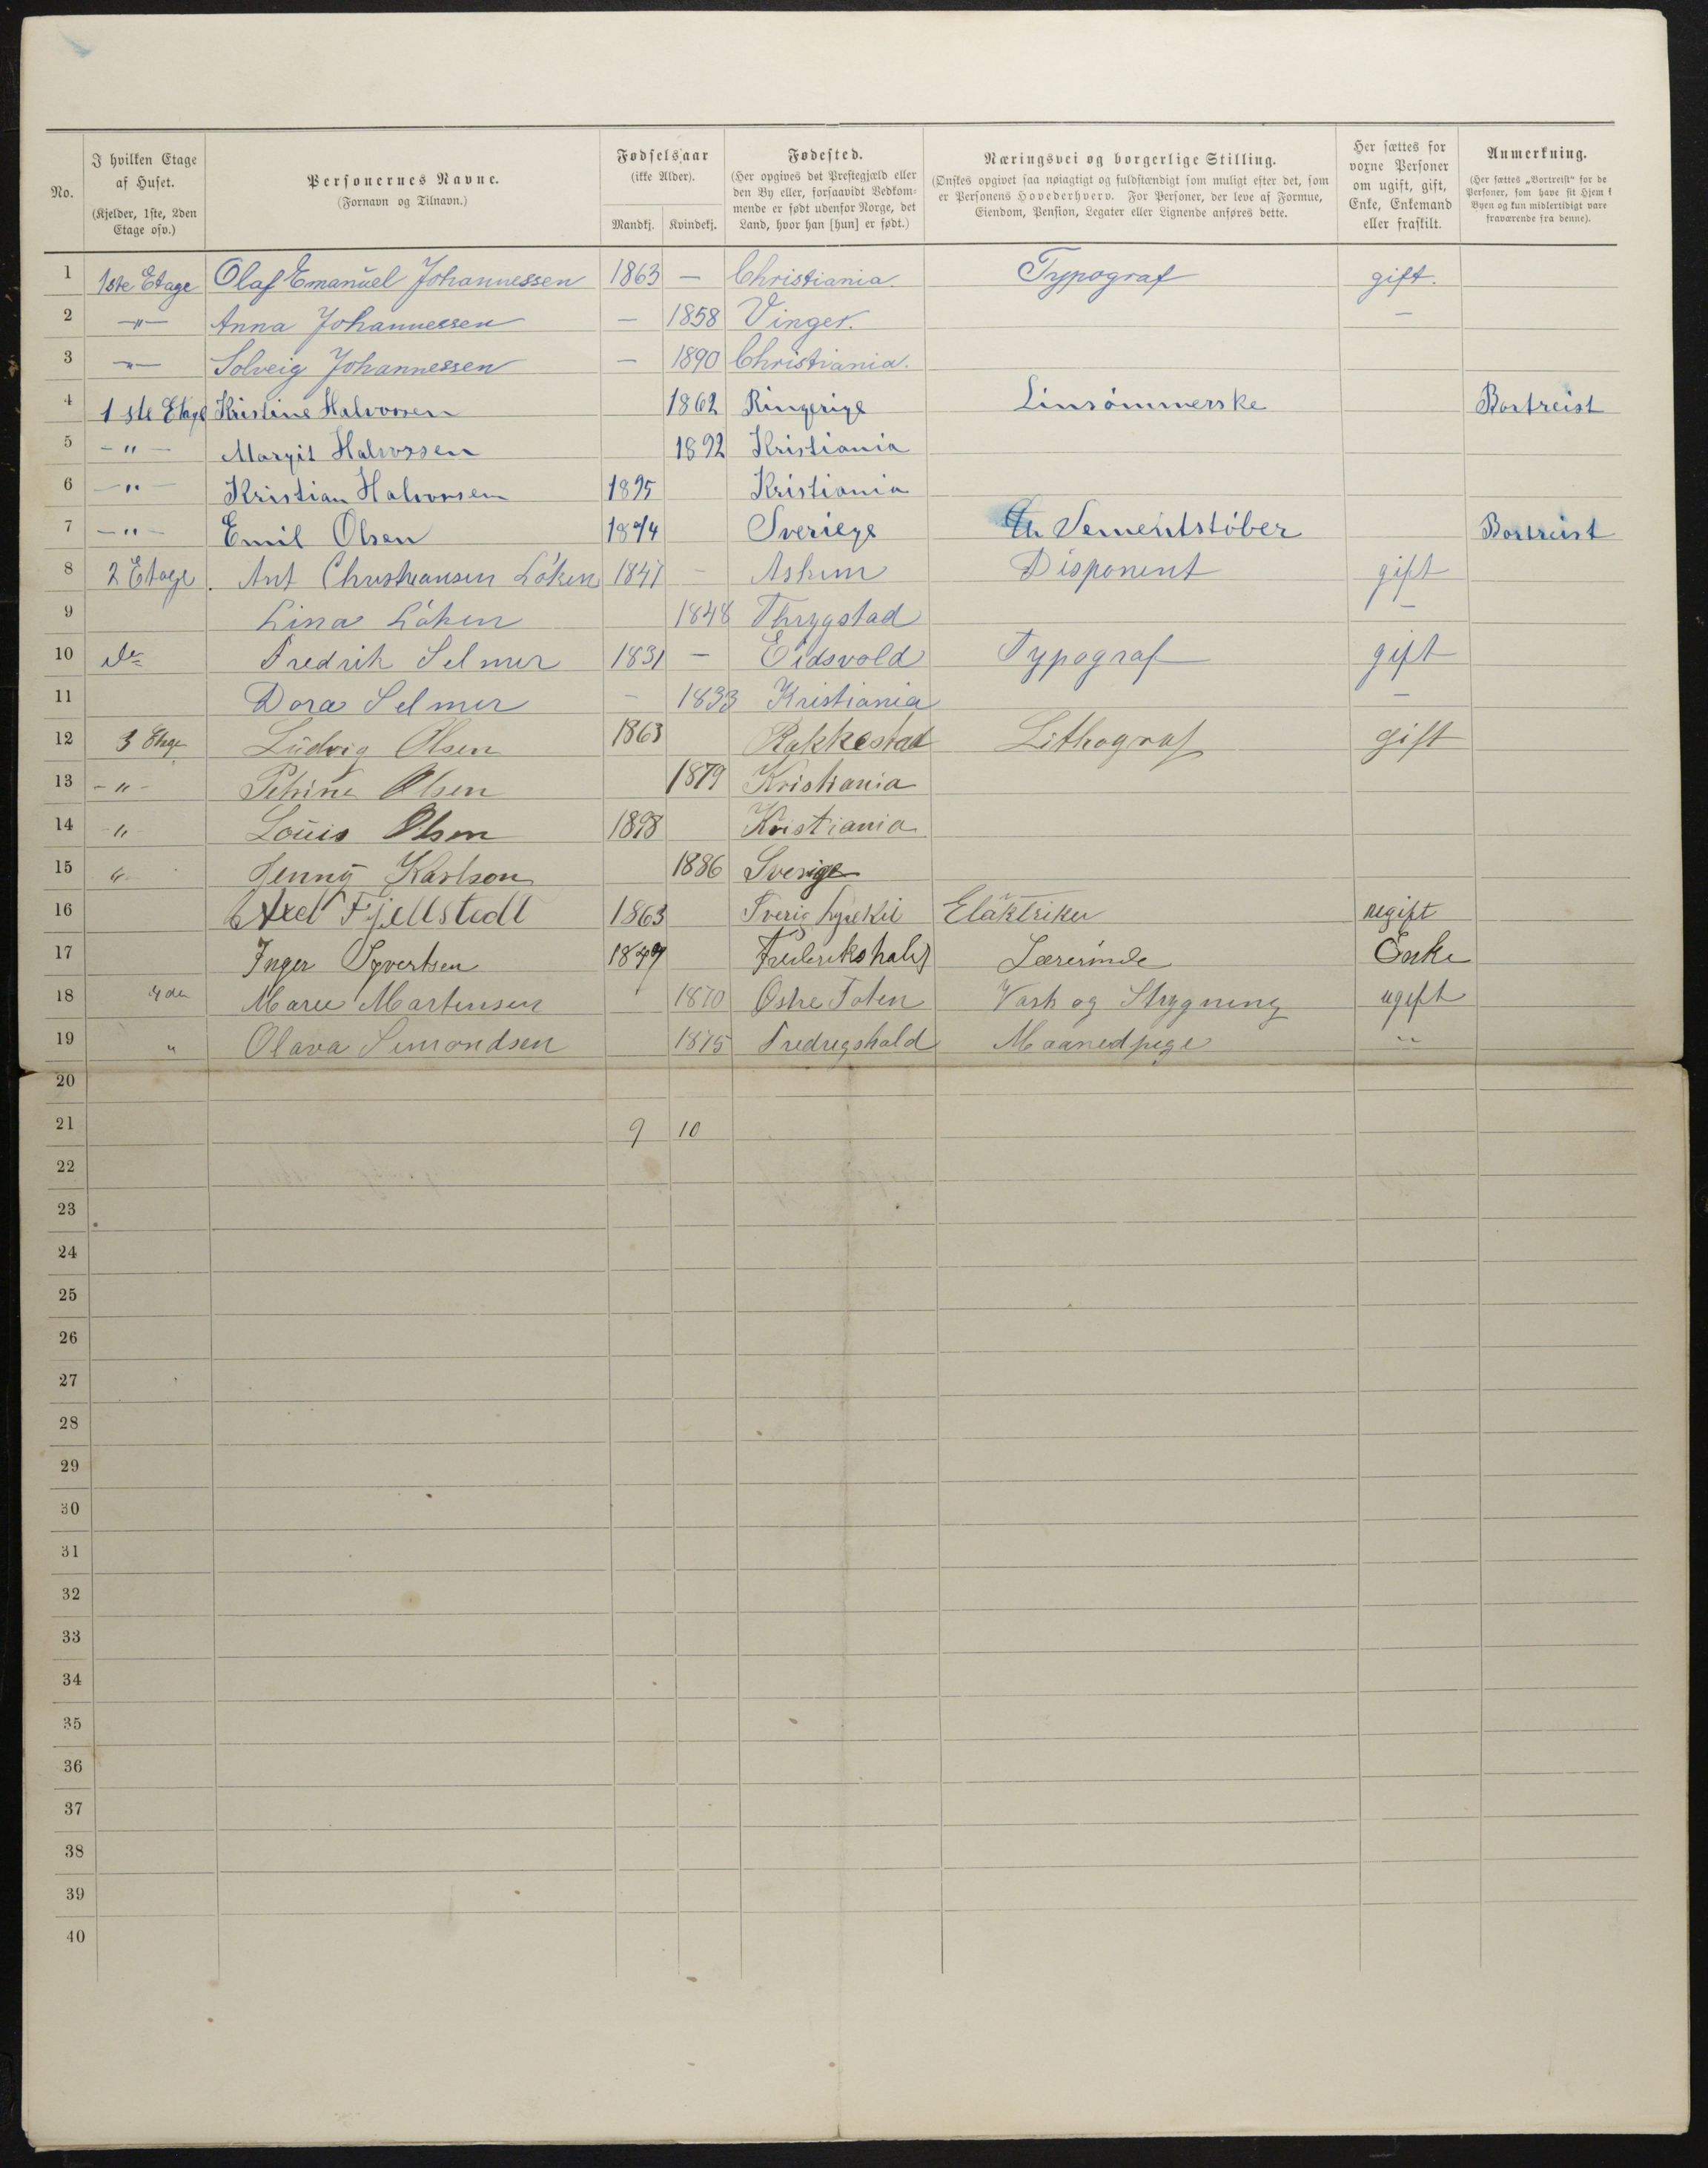 No. | I hvilken Etage af Huset. (Kjelder, 1ste, 2den Etage osv.) | Personernes Navne. (Fornavn og Tilnavn.) | Fødselsaar (ikke Alder). Mandkj. | Kvindekj. | Fødested. (Her opgives det Prestegjæld eller den By eller, forsaavidt Vedkommende er født udenfor Norge, det Land, hvor han [hun] er født.) | Næringsvei og borgerlige Stilling. (Ønskes opgivet saa nøiagtigt og fuldstændigt som muligt efter det, som er Personens Hovederhverv. For Personer, der leve af Formue, Eiendom, Pension, Legater eller Lignende anføres dette. | Her sættes for voxne Personer om ugift, gift, Enke, Enkemand eller fraskilt. | Anmerkning. (Her sættes „Bortreist“ for de Personer, som have sit Hjem i Byen og kun midlertidigt vare fraværende fra denne).
1 | 1ste Etage | Olaf Emanuel Johannessen | 1863 | — | Christiania. | Typograf | gift.
2 | —"— | Anna Johannessen | — | 1858 | Vinger. | | —
3 | —"— | Solveig Johannessen | — | 1890 | Christiania.
4 | 1ste Etage | Kristine Halvorsen | | 1862 | Ringerige | Linsömmerske | | Bortreist
5 | —"— | Margit Halvorsen | | 1892 | Kristiania
6 | —"— | Kristian Halvorsen | 1895 | | Kristiania
7 | —"— | Emil Olsen | 1874 | | Sveriege | Sementstöber | | Bortreist
8 | 2 Etage. | Ant Christiansen Löken | 1841 | — | Askim | Disponent | gift
9 | | Lina Löken | | 1848 | Thrygstad | | —
10 | Do | Fredrik Selmer | 1831 | — | Eidsvold | Typograf | gift
11 | | Dora Selmer | — | 1833 | Kristiania | | —
12 | 3 Etage | Ludvig Olsen | 1863 | | Rakkestad | Lithograf | gift
13 | —"— | Petrine Olsen | | 1879 | Kristiania
14 | " | Louis Olsen | 1898 | | Kristiania
15 | " | Jenny Karlson | | 1886 | Sverige
16 | | Axel Fjellstedt | 1863 | | Sverig | Eläktriker | ugift
17 | | Inger Syvertsen | 1849 | | Frederikshald | Lærerinde | Enke
18 | 4de | Maree Martensen | | 1870 | Østre Toten | Vask og Strygning | ugift
19 | " | Olava Simondsen | | 1875 | Fredrigshald | Maanedpige | "
20
21 | | | 9 | 10
22
23
24
25
26
27
28
29
30
31
32
33
34
35
36
37
38
39
40